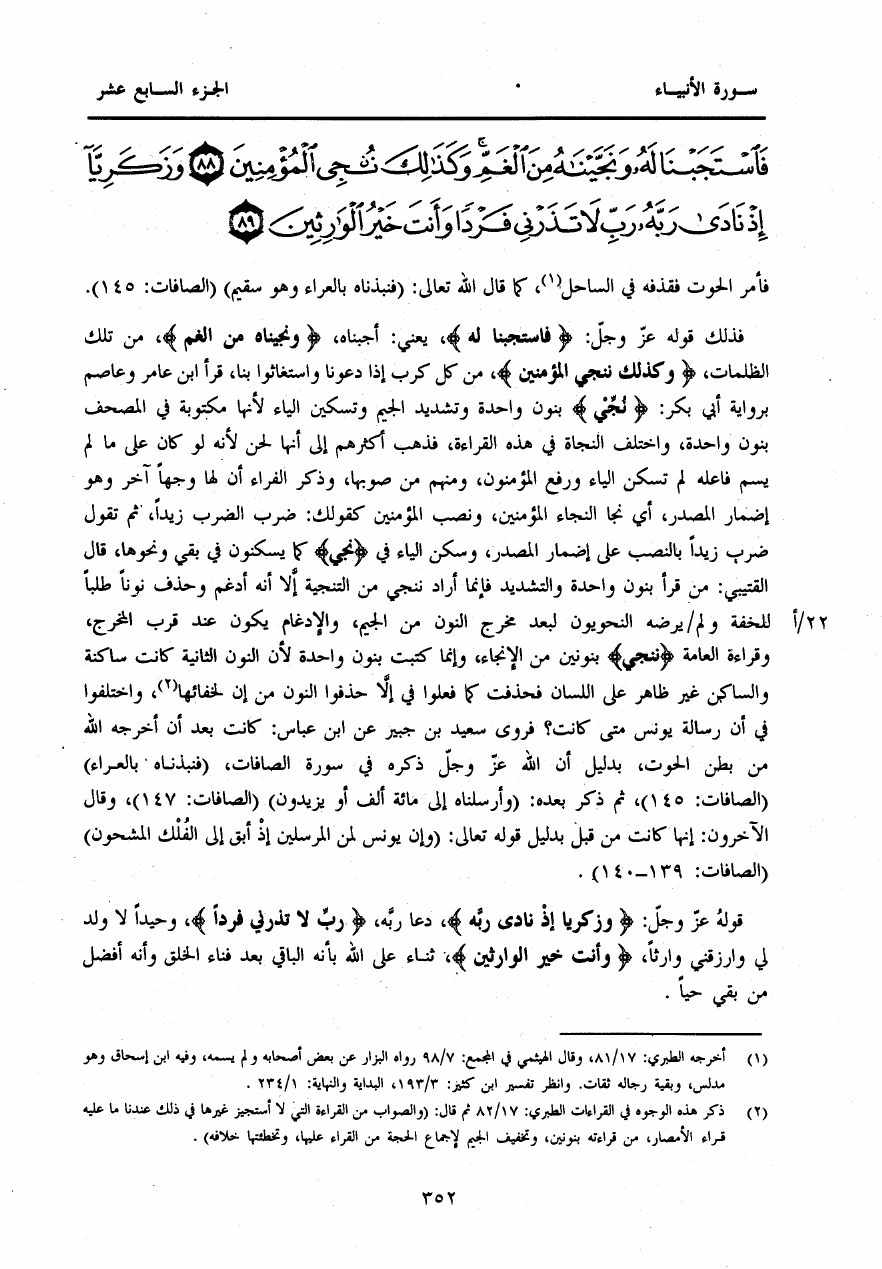 سورة الأنبياء
الجزء السابع عشر
فَٱسْتَجَبْنَا لَهُۥ وَنَجَّيْنَٰهُ مِنَ ٱلْغَمِّ ۚ وَكَذَٰلِكَ نُۨجِى ٱلْمُؤْمِنِينَ ٨٨ وَزَكَرِيَّآ
إِذْ نَادَىٰ رَبَّهُۥ رَبِّ لَا تَذَرْنِى فَرْدًا وَأَنتَ خَيْرُ ٱلْوَٰرِثِينَ ٨٩
فأمر الحوت فقذفه في الساحل(١)، كما قال الله تعالى: (فنبذناه بالعراء وهو سقيم) (الصافات: ١٤٥).
فذلك قوله عزّ وجلّ: ﴿ فاستجبنا له ﴾، يعني: أجبناه، ﴿ ونجيناه من الغم ﴾، من تلك
الظلمات، ﴿ وكذلك ننجي المؤمنين ﴾، من كل كرب إذا دعونا واستغاثوا بنا، قرأ ابن عامر وعاصم
برواية أبي بكر: ﴿ نُجِّيْ ﴾ بنون واحدة وتشديد الجيم وتسكين الياء لأنها مكتوبة في المصحف
بنون واحدة، واختلف النجاة في هذه القراءة، فذهب أكثرهم إلى أنها لحن لأنه لو كان على ما لم
يسم فاعله لم تسكن الياء ورفع المؤمنون، ومنهم من صوبها، وذكر الفراء أن لها وجهاً آخر وهو
إضمار المصدر، أي نجا النجاء المؤمنين، ونصب المؤمنين كقولك: ضرب الضرب زيداً، ثم تقول
ضرب زيداً بالنصب على إضمار المصدر، وسكن الياء في ﴿نجي﴾ كما يسكنون في بقي ونحوها، قال
القتيبي: من قرأ بنون واحدة والتشديد فإنما أراد ننجي من التنجية إلَّا أنه أدغم وحذف نوناً طلباً
للخفة ولم/يرضه النحويون لبعد مخرج النون من الجيم، والإدغام يكون عند قرب المخرج، ٢٢/أ
وقراءة العامة ﴿ننجي﴾ بنونين من الإنجاء، وإنما كتبت بنون واحدة لأن النون الثانية كانت ساكنة
والساكن غير ظاهر على اللسان فحذفت كما فعلوا في إلَّا حذفوا النون من إن لخفائها(٢)، واختلفوا
في أن رسالة يونس متى كانت؟ فروى سعيد بن جبير عن ابن عباس: كانت بعد أن أخرجه الله
من بطن الحوت، بدليل أن الله عزّ وجلّ ذكره في سورة الصافات، (فنبذناه بالعراء)
(الصافات: ١٤٥)، ثم ذكر بعده: (وأرسلناه إلى مائة ألف أو يزيدون) (الصافات: ١٤٧)، وقال
الآخرون: إنها كانت من قبل بدليل قوله تعالى: (وإن يونس لمن المرسلين إذْ أبق إلى الفُلْك المشحون)
(الصافات: ١٣٩–١٤٠) .
قولهُ عزّ وجلّ: ﴿ وزكريا إذْ نادى ربَّه ﴾، دعا ربَّه، ﴿ ربِّ لا تذرني فرداً ﴾، وحيداً لا ولد
لي وارزقني وارثاً، ﴿ وأنت خير الوارثين ﴾، ثناء على الله بأنه الباقي بعد فناء الخلق وأنه أفضل
من بقي حياً .
(١) أخرجه الطبري: ٨١/١٧، وقال الهيثمي في المجمع: ٩٨/٧ رواه البزار عن بعض أصحابه ولم يسمه، وفيه ابن إسحاق وهو
مدلس، وبقية رجاله ثقات. وانظر تفسير ابن كثير: ١٩٣/٣، البداية والنهاية: ٢٣٤/١ .
(٢) ذكر هذه الوجوه في القراءات الطبري: ٨٢/١٧ ثم قال: (والصواب من القراءة التي لا أستجيز غيرها في ذلك عندنا ما عليه
قراء الأمصار، من قراءته بنونين، وتخفيف الجيم لإجماع الحجة من القراء عليها، وتخطئتها خلافه) .
٣٥٢